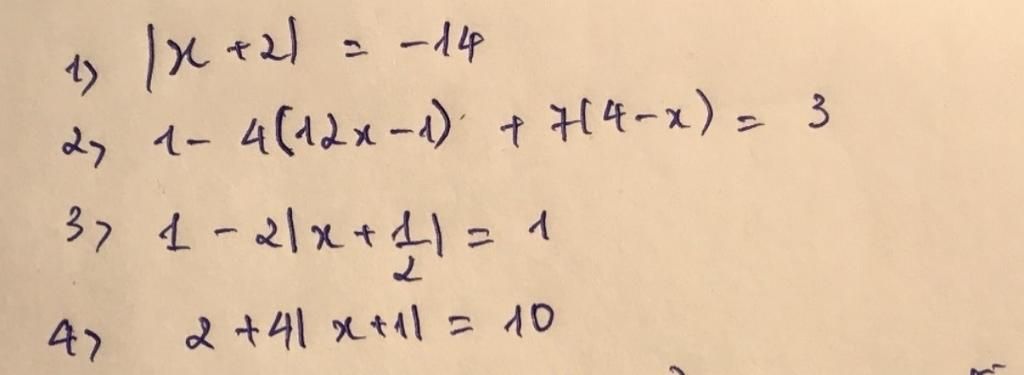 1) |x + 2| = -14
2) 1 - 4(12x - 1) + 7(4 - x) = 3
3) 1 - 2|x + 1/2| = 1
4) 2 + 4|x + 1| = 10